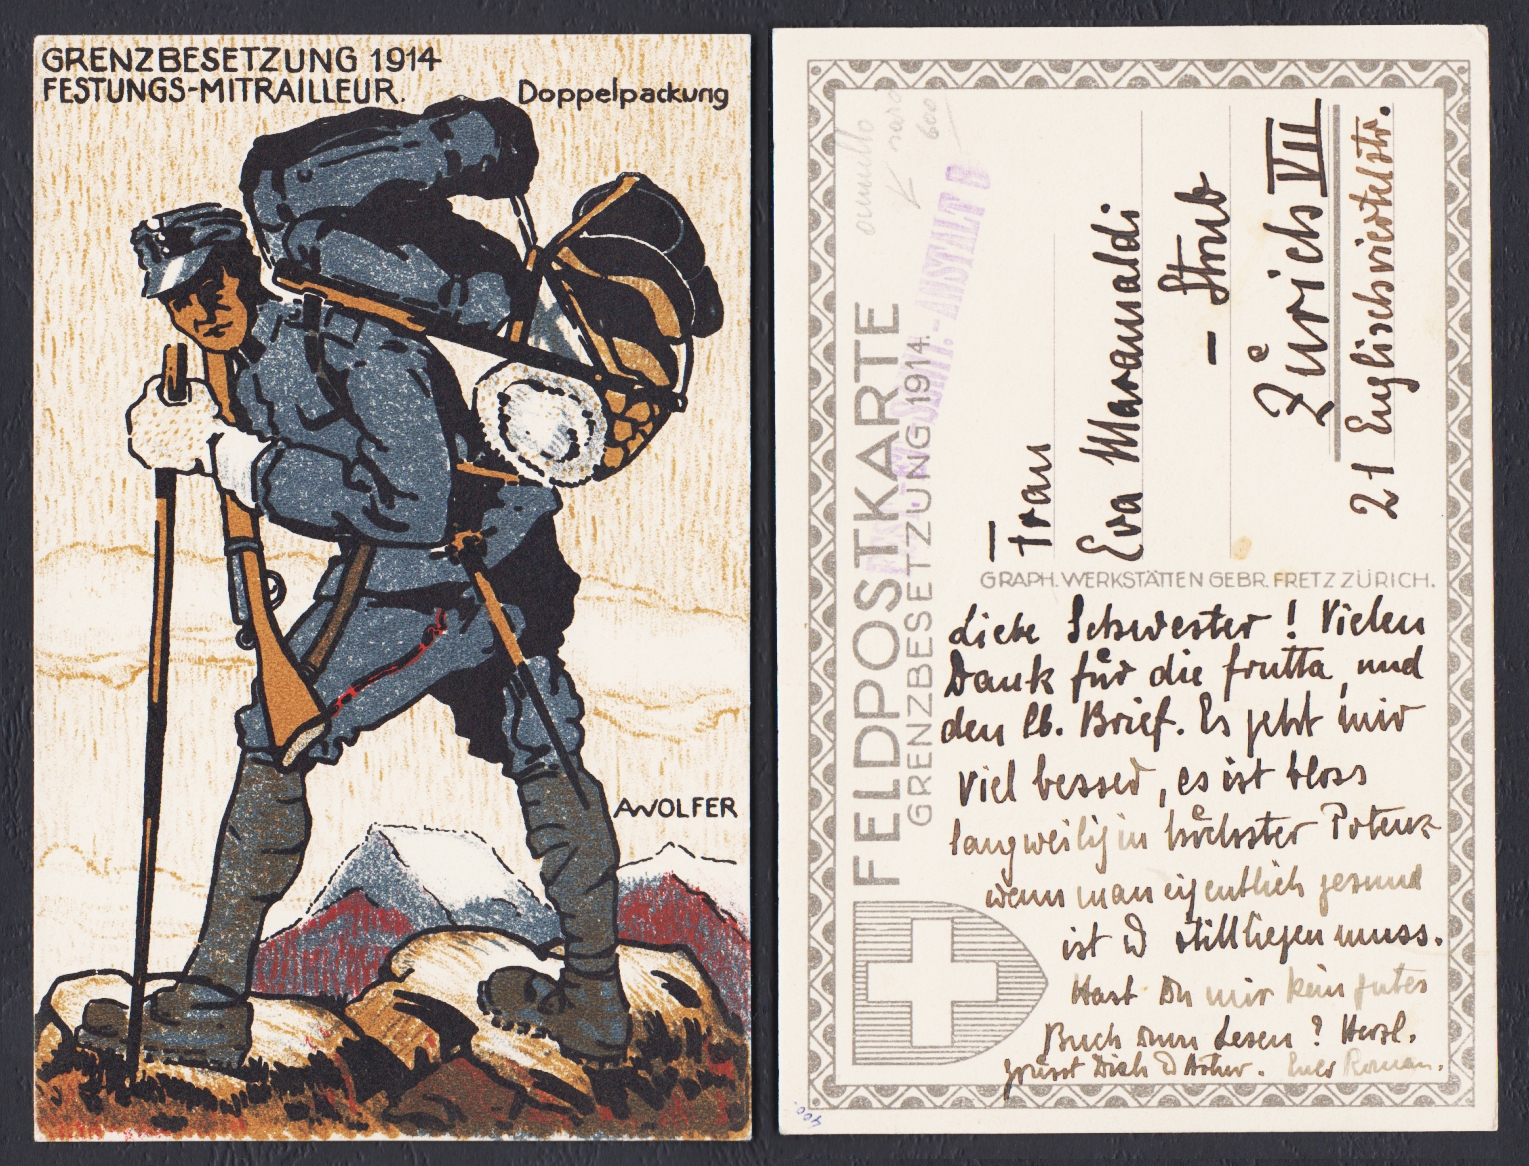 GRENZBESETZUNG 1914
FESTUNGS-MITRAILLEUR.
Doppelpackung
A WOLFER
FELDPOSTKARTE
GRENZBESETZUNG 1914.
ANSTALT B
Frau
Eva Maramaldi
- Strub
Zürich VII
21 Englischviertelstr.
GRAPH. WERKSTÄTTEN GEBR. FRETZ ZÜRICH.
Liebe Schwester! Vielen
Dank für die frutta, und
den lb. Brief. Es geht mir
viel besser, es ist bloss
langweilig in höchster Potenz
wenn man eigentlich gesund
ist & stillliegen muss.
Hast Du mir kein gutes
Buch zum Lesen? Herzl.
grüsst Dich & Artur. Euer Roman.